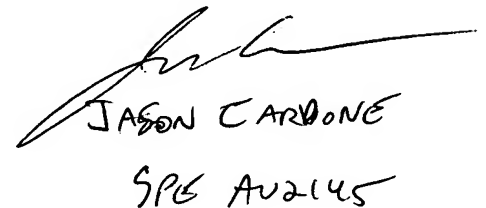 JASON CARDONE
SPE AU2145